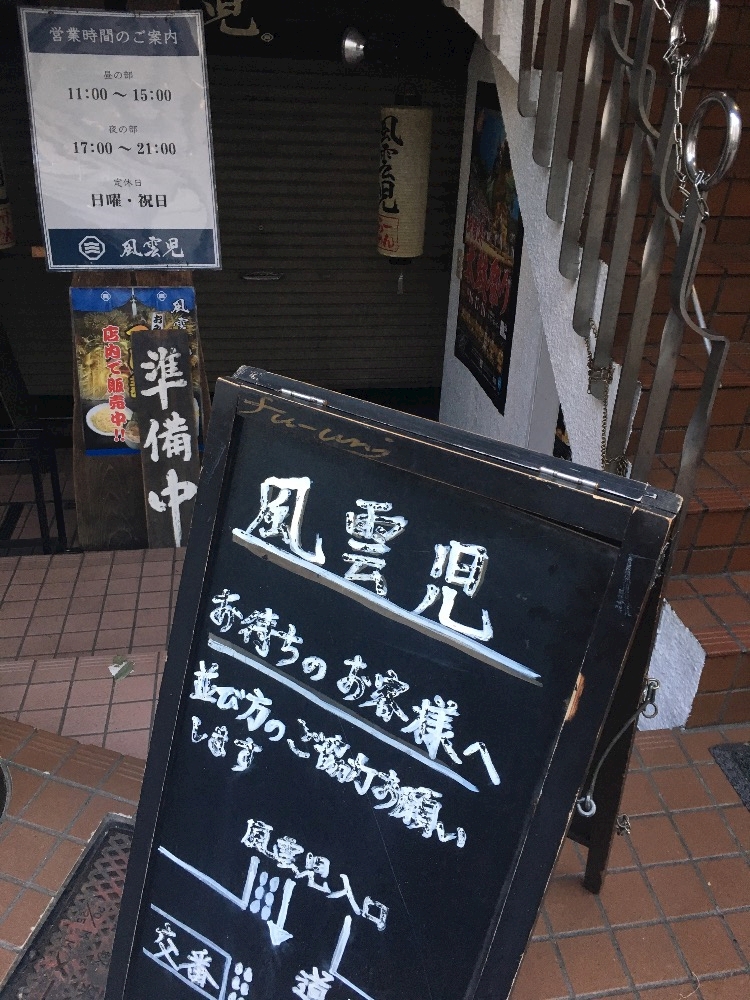 営業時間のご案内
昼の部
11:00 ～ 15:00
夜の部
17:00 ～ 21:00
定休日
日曜・祝日
風雲児
児
風雲児
らーめん
風雲
店内で販売中!!
準備中
fu-unji
風雲児
お待ちのお客様へ
並び方のご協力お願い
します
風雲児入口
交番
道